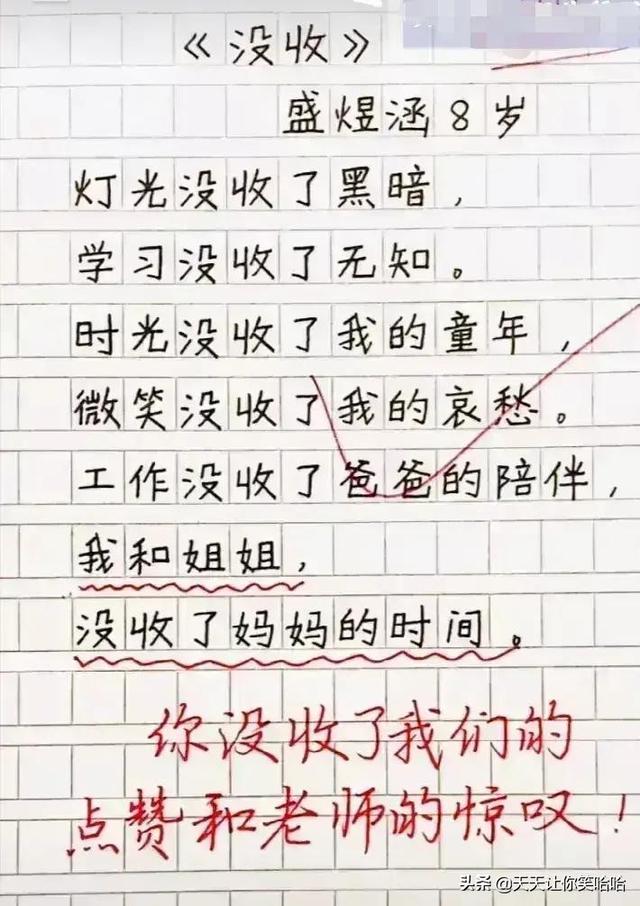 《没收》
盛煜涵8岁
灯光没收了黑暗，
学习没收了无知。
时光没收了我的童年，
微笑没收了我的哀愁。
工作没收了爸爸的陪伴，
我和姐姐，
没收了妈妈的时间。
你没收了我们的
点赞和老师的惊叹！
头条 @天天让你笑哈哈